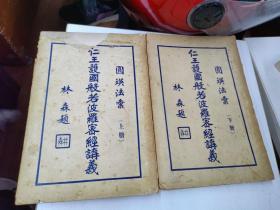 圓瑛法彙
(上册)
仁王護國般若波羅密經講義
林森題
圓瑛法彙
(下册)
仁王護國般若波羅密經講義
林森題